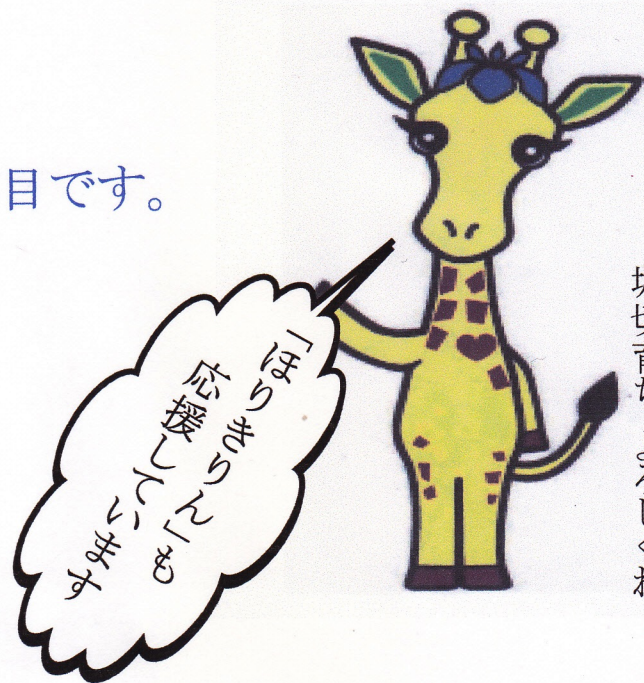 目です。
「ほりきりん」も
応援しています